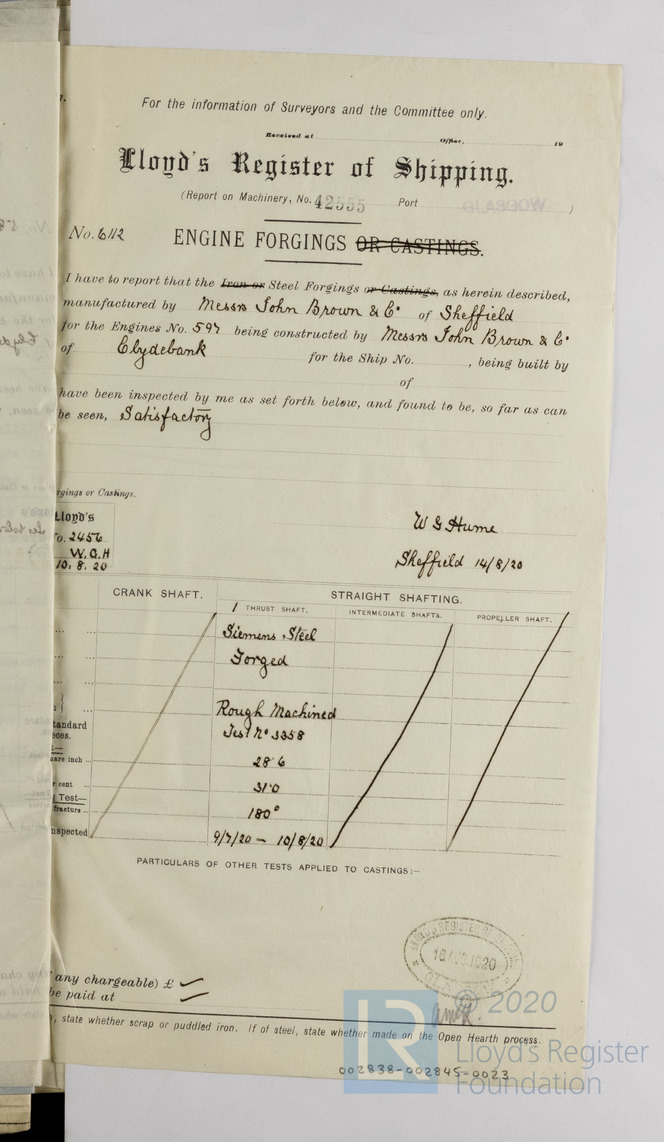 For the information of Surveyors and the Committee only.
Received at Office, 19
Lloyd's Register of Shipping.
(Report on Machinery, No. 42555 Port )
No. 6112
ENGINE FORGINGS OR CASTINGS.
I have to report that the Iron or Steel Forgings or Castings, as herein described,
manufactured by Messrs John Brown & Co of Sheffield
for the Engines No. 597 being constructed by Messrs John Brown & Co
of Clydebank for the Ship No. , being built by
of
have been inspected by me as set forth below, and found to be, so far as can
be seen, Satisfactory
rgings or Castings.
Lloyd's
o. 2456
W.G.H
10.8.20
W G Hume
Sheffield 14/8/20
CRANK SHAFT. STRAIGHT SHAFTING.
1 THRUST SHAFT. INTERMEDIATE SHAFTS. PROPELLER SHAFT.
Siemens Steel
Forged
Rough Machined
tandard
Test No 3358
uare inch ... 28.6
r cent ... 31.0
Test—
fracture ... 180°
nspected 9/7/20 – 10/8/20
PARTICULARS OF OTHER TESTS APPLIED TO CASTINGS:—
LLOYD'S REGISTER OF SHIPPING
16 AUG 1920
any chargeable) £
be paid at
, state whether scrap or puddled iron. If of steel, state whether made on the Open Hearth process.
© 2020
LR
Lloyd's Register
Foundation
002838-002845-0023